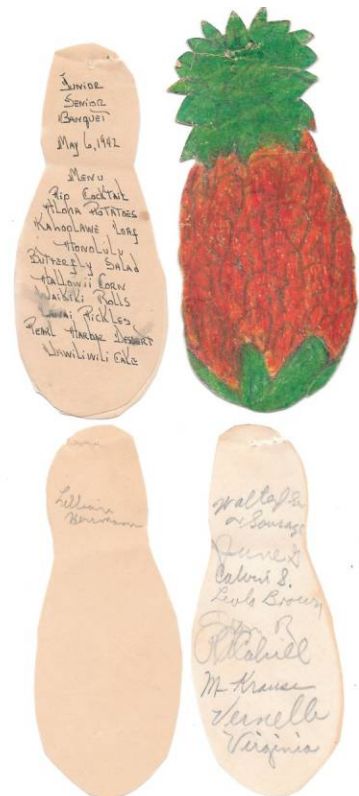 Junior
Senior
Banquet
May 6, 1942
Menu
Rip Cocktail
Aloha Potatoes
Kahoolawe Loaf
Honolulu
Butterfly Salad
Hallowii Corn
Waikiki Rolls
Lawai Pickles
Pearl Harbor Dessert
Uwiliwili Cake
Lillian
Herrmann
& Sausage
June
Calvin S.
Leola Brown
M Krause
Vernelle
Virginia